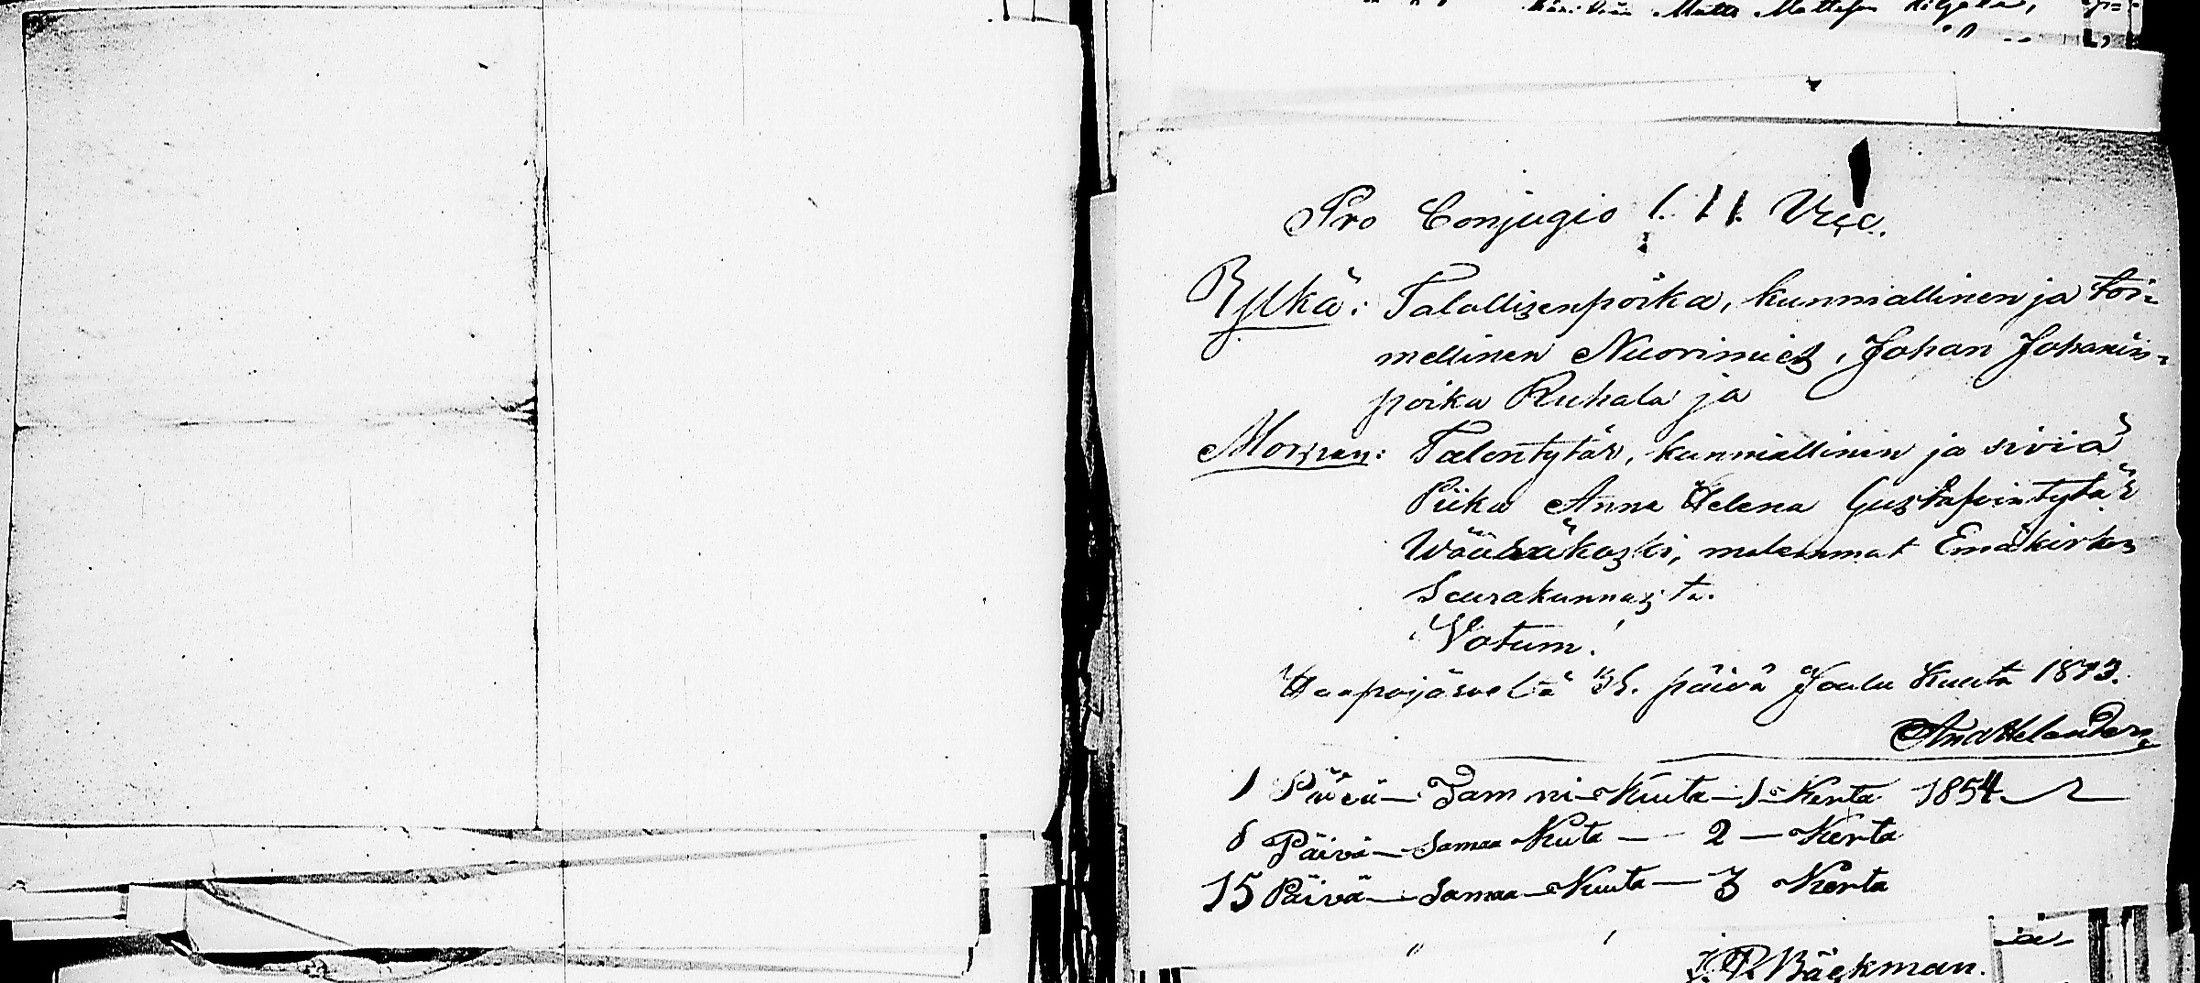 Matts Mattsson
Pro Conjugio 1. 11. Vice.
Ylkä: Talollisenpoika, kunniallinen ja toi=
mellinen Nuorimies, Johan Johanin=
poika Ruhala ja
Morsian: Talontytär, kunniallinen ja siviä
Piika Anna Helena Gustafvintytär
molemmat Emäkirkon
Seurakunnasta.
Votum!
Haapajärveltä päivä Joulu Kuuta 1853.
And Helander
1 Päivä — Tammi — Kuuta — 1 — Kerta 1854
8 Päivä — Samaa Kuta — 2 — Kerta
15 Päivä — Samaa — Kuuta — 3 Kerta
J. P. Bäckman.